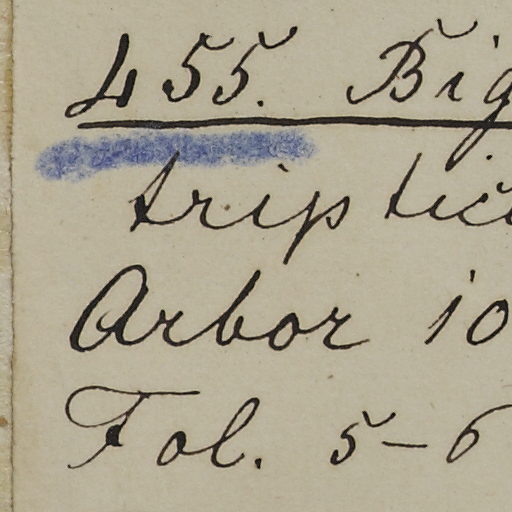 455. Big
triptič
Arbor 10
Fol. 5-6